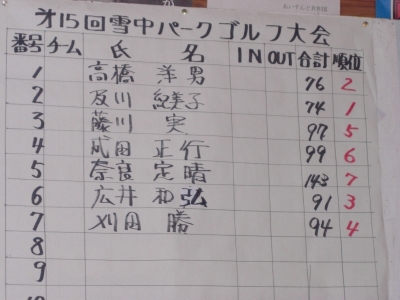 第15回雪中パークゴルフ大会
番号 チーム 氏 名 IN OUT 合計 順位
1 高橋 洋男 76 2
2 及川 紀美子 74 1
3 藤川 実 97 5
4 成田 正行 99 6
5 奈良 定晴 143 7
6 広井 和弘 91 3
7 刈田 勝 94 4
8
9